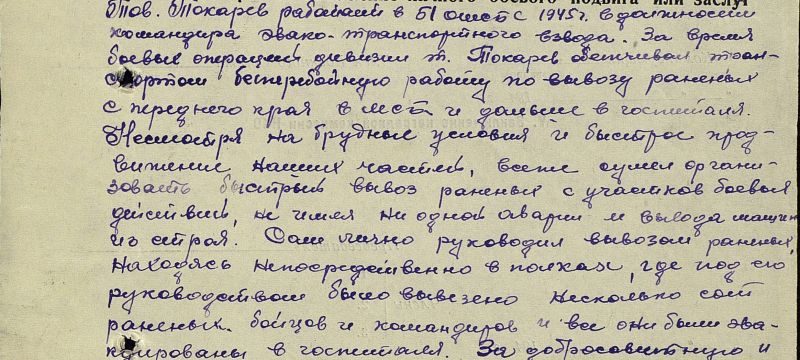 личного боевого подвига или заслуг
Тов. Токарев работает в 51 омсб с 1945г. в должности
командира эвако-транспортного взвода. За время
боевых операций дивизии т. Токарев обеспечивал тран-
спортом бесперебойную работу по вывозу раненых
с переднего края в омсб и дальше в госпиталя.
Несмотря на трудные условия и быстрое прод-
вижение наших частей, всеже сумел органи-
зовать быстрый вывоз раненых с участков боевых
действий, не имея ни одной аварии и вывода машин
из строя. Сам лично руководил вывозом раненых,
находясь непосредственно в полках, где под его
руководством было вывезено несколько сот
раненых бойцов и командиров и все они были эва-
куированы в госпиталя. За добросовестную и